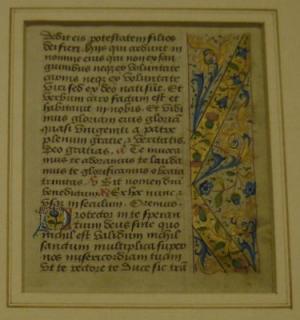 Dedit eis potestatem filios
dei fieri. Hijs qui credunt in
nomine eius qui non ex san
guinibus neqz ex voluntate
carnis neqz ex voluntate
viri sed ex deo nati sūt. Et
verbum caro factum est et
habitauit in nobis. Et vidi
mus gloriam eius gloriā
quasi vnigeniti a patre
plenum gratie et veritatis.
Deo gratias. Te inuoca
mus te adoramus te lauda
mus te glorificamus o beata
trinitas. Sit nomen dñi
benedictum. Ex hoc nunc et
vsqz in seculum. Oremus.
Protector in te speran
tium deus sine quo
nichil est validum nichil
sanctum multiplica super
nos misericordiam tuam
vt te rectore te duce sic trā